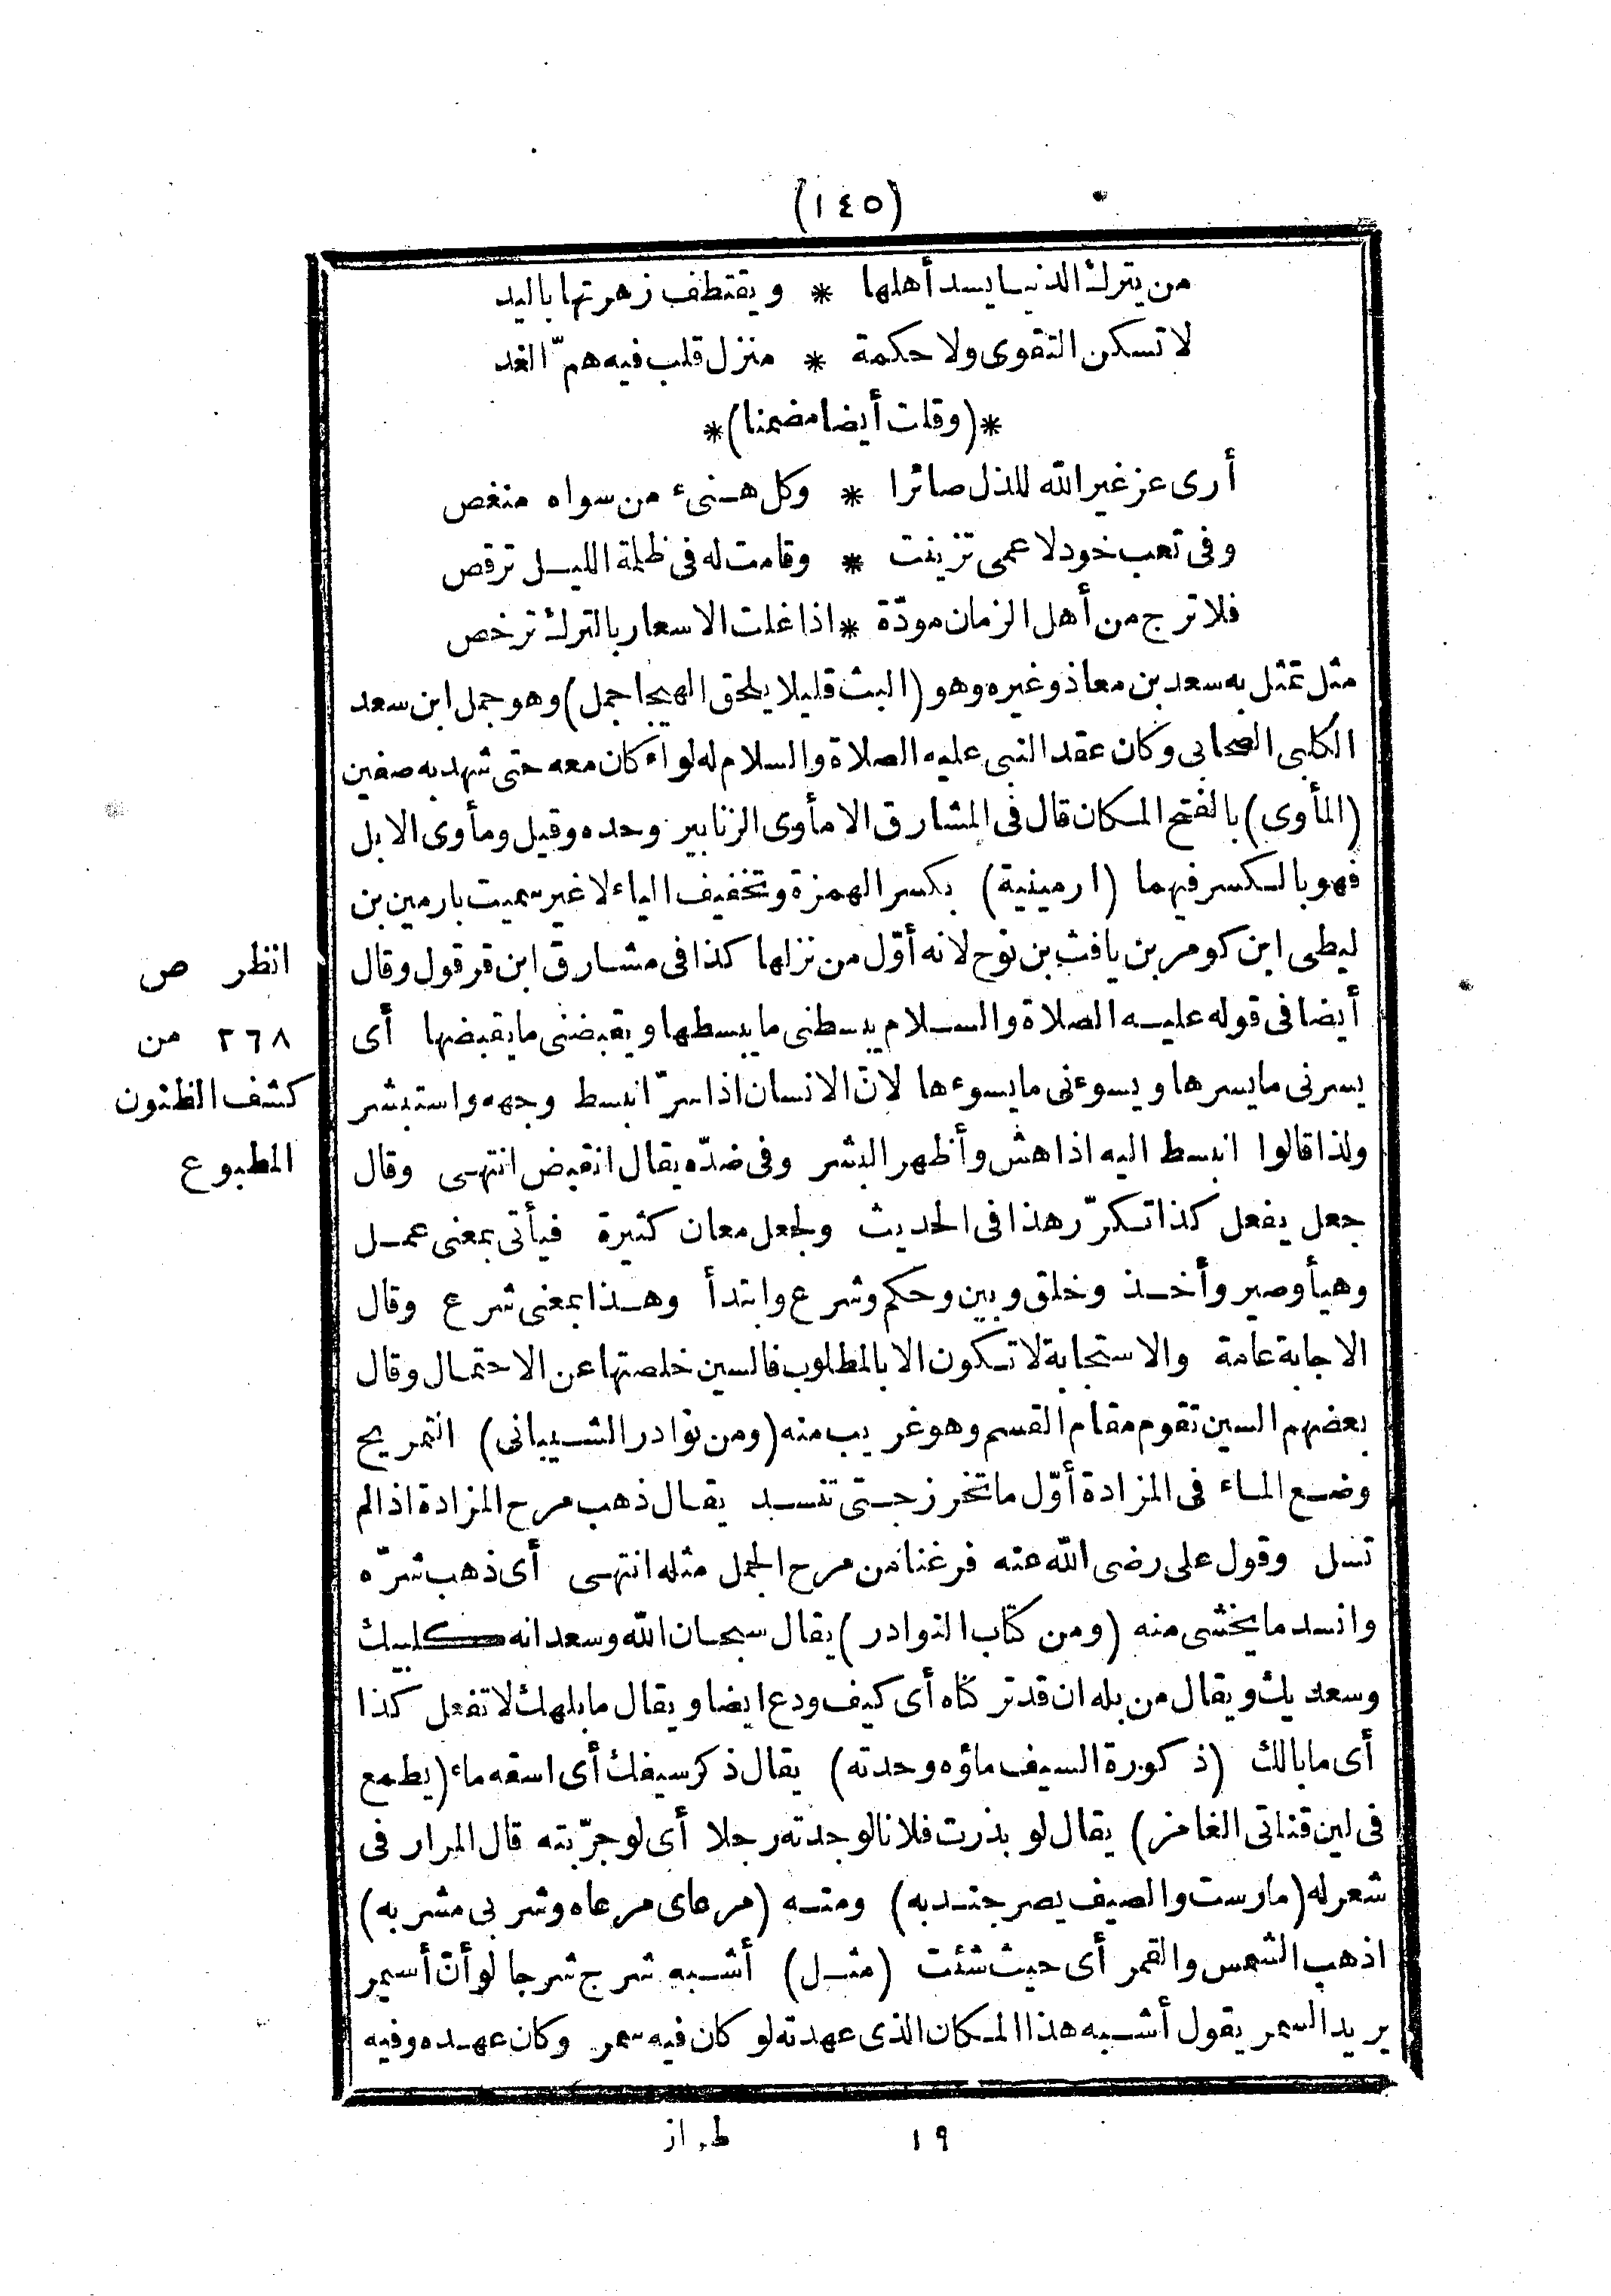 (١٤٥)
من يترك الدنيا يسد أهلها * ويقتطف زهرتها باليد
لا تسكن التقوى ولا حكمة * منزل قلب فيه همّ الغد
*(وقلت أيضا مضمنا)*
أرى عز غير الله للذل صائرا * وكل هنىء من سواه منغص
وفى تعب خود لاعمى تزينت * وقامت له فى ظلمة الليل ترقص
فلا ترج من أهل الزمان مودّة * اذا غلت الاسعار بالترك ترخص
مثل تمثل به سعد بن معاذ وغيره وهو (البث قليلا يلحق الهيجا جمل) وهو جمل ابن سعد
الكلبى الصحابى وكان عقد النبى عليه الصلاة والسلام له لواء كان معه حتى شهد به صفين
(المأوى) بالفتح المكان قال فى المشارق الا مأوى الزنابير وحده وقيل ومأوى الابل
فهو بالكسر فيهما (ارمينية) بكسر الهمزة وتخفيف الياء لا غير سميت بارمين بن
ليطى ابن كومر بن يافث بن نوح لانه أوّل من نزلها كذا فى مشارق ابن قرقول وقال
أيضا فى قوله عليه الصلاة والسلام يبسطنى ما يبسطها ويقبضنى ما يقبضها أى
يسرنى ما يسرها ويسوءنى ما يسوءها لانّ الانسان اذا سرّ انبسط وجهه واستبشر
ولذا قالوا انبسط اليه اذا هش وأظهر البشر وفى ضدّه يقال انقبض انتهى وقال
جعل يفعل كذا تكرّر هذا فى الحديث ولجعل معان كثيرة فيأتى بمعنى عمل
وهيأ وصير وأخذ وخلق وبين وحكم وشرع وابتدأ وهذا بمعنى شرع وقال
الاجابة عامة والاستجابة لا تكون الا بالمطلوب فالسين خلصتها عن الاحتمال وقال
بعضهم السين تقوم مقام القسم وهو غريب منه (ومن نوادر الشيبانى) التمريح
وضع الماء فى المزادة أوّل ما تخرز حتى تنسد يقال ذهب مرح المزادة اذا لم
تسل وقول على رضى الله عنه فرغنا من مرح الجمل مثله انتهى أى ذهب شرّه
وانسد ما يخشى منه (ومن كتاب النوادر) يقال سبحان الله وسعدانه كلبيك
وسعديك ويقال من بله ان قد تركاه أى كيف ودع ايضا ويقال ما بلهك لا تفعل كذا
أى ما بالك (ذكورة السيف ماؤه وحدته) يقال ذكر سيفك أى اسقه ماء (يطمع
فى لين قناتى الغامز) يقال لو بذرت فلانا لوجدته رجلا أى لو جرّبته قال المرار فى
شعر له (مارست والصيف يصر جندبه) ومنه (مرعاى مرعاه وشربى مشربه)
اذهب الشمس والقمر أى حيث شئت (مثل) أشبه شرج شرجا لو أنّ أسيمر
يريد السمر يقول أشبه هذا المكان الذى عهدته لو كان فيه سمر وكان عهده وفيه
انظر ص
٢٦٨ من
كشف الظنون
المطبوع
١٩ طراز